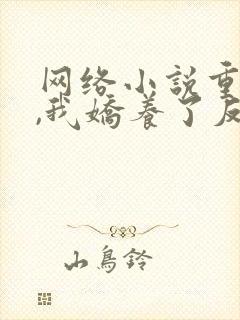 网络小说重
,我嬌养了反
山鳥鈴